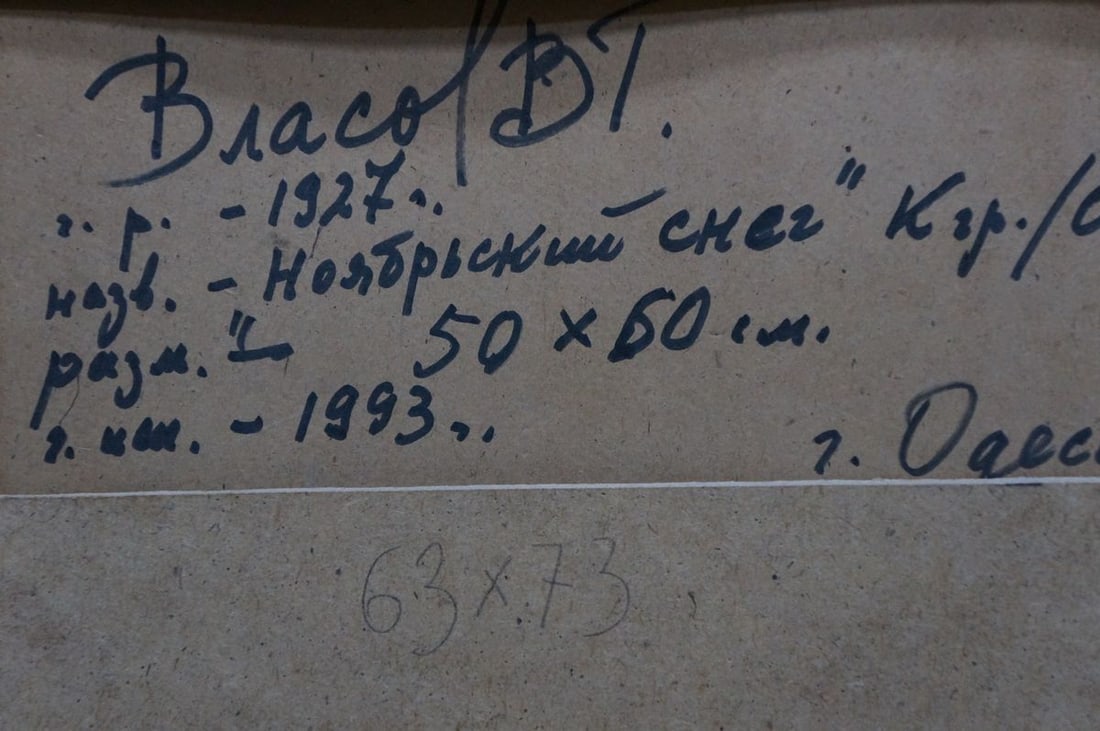 Власов ВГ.
г. р. - 1927 г.
назв. - Ноябрьский снег" К гр./
разм. " - 50 х 60 см.
г. исп. - 1993 г.
г. Одесс
63 х 73